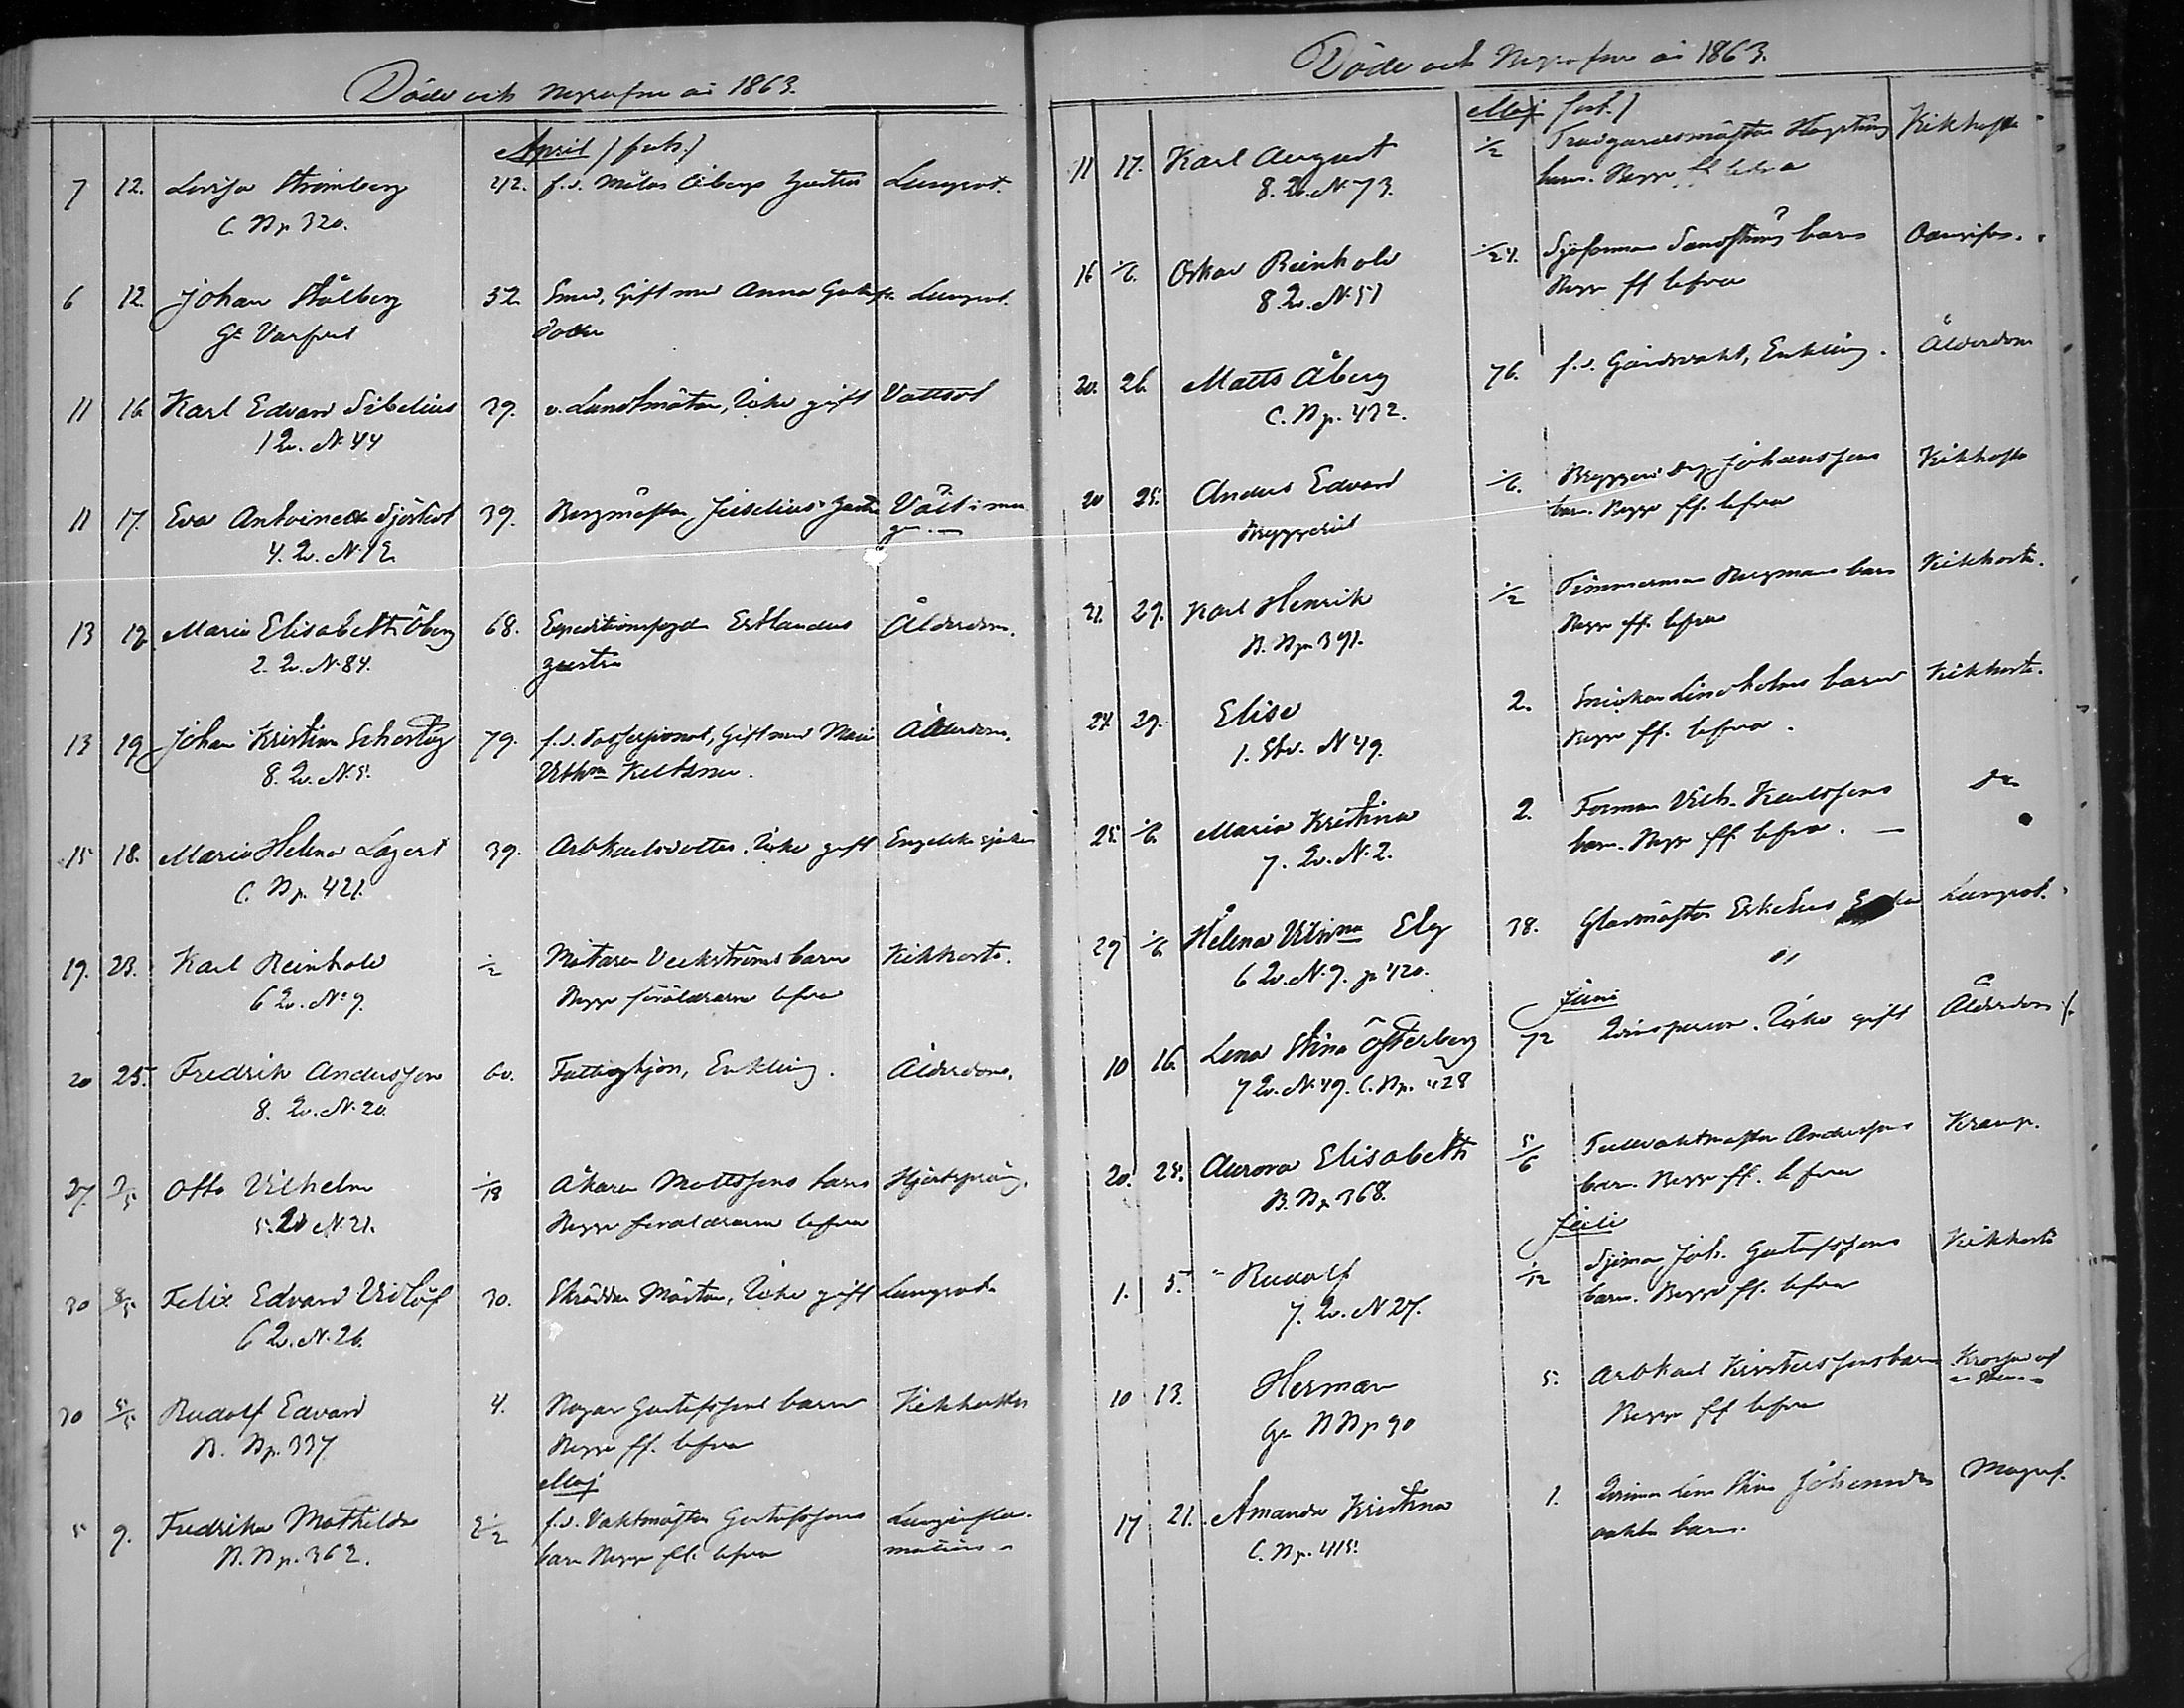 Döde och Begrafne år 1863.
April (forts.)
7 12. Lovisa Strömberg 42. f.d. Målar Åbergs hustru Lungsot.
C. Bp. 320.
6 12. Johan Stålberg 32. Smed, Gift med Anna Gustafs Lungsot.
dotter
11 16 Karl Edvard Sibelius 39. v. Landtmätare, Icke gift Vattsot
1 Qv. N. 44
11 17. Eva Antoinette Sjöstedt 39. Borgmästar Juselius hustru
4. Qv. N. 12
13 17 Maria Elisabeth Öberg 68. Expeditionsfogden Estlanders Ålderdom.
2. Qv. N. 84. hustru
13 19 Johan Kristian 79. f.d. Possessionat, Gift med Maria Ålderdom.
8. Qv. N. 5. Vilhma
15 18. Maria Helena Lagert 39. Arbkarlsdotter. Icke gift Engelska sjukan
C. Bp. 421.
19. 23. Karl Reinhold ½ Mätaren Veckströms barn Kikhosta.
6 Qv. No 9. Begge föräldrarne lefva
20 25. Fredrik Andersson 60. Fattighjon, Enkling. Ålderdom.
8. Qv. N. 20.
27. 2/5 Otto Vilhelm 1/18 Åkaren Mattssons barn Hjertsprång.
5. Qv N. 21. Begge föräldrarne lefva
30 8/5 Felix Edvard Vidlöf 30. Skräddar Mästare, Icke gift Lungsot
6 Qv. N. 26.
30 5/5 Rudolf Edvard 4. Gustafssons barn Kikhosta
B. Bp. 337 Begge ff. lefva
Maj
5 9. Fredrika Mathilda 2½ f.d. Vaktmästar Gustafssons Lunginflam-
B. Bp. 362. barn Begge ff. lefva mation
Döde och Begrafne år 1863.
Maj fort.)
11 17. Karl August ½ Trädgårdsmästar barn. Begge ff lefva Kikhosta
8. Qv. N 73.
16 1/6. Oskar Reinhold 1/24. Sjöman barn
8 Qv. N. 51 Begge ff lefva
20. 26. Matts Åberg 76. f.d. Gårdsvakt, Enkling. Ålderdom
C. Bp. 432.
20 25. Anders Edvard 1/6. Bryggeri drg Johanssons Kikhosta
Bryggeriet barn. Begge ff. lefva
21. 29. Karl Henrik ½ Timmerman Bergmans barn Kikhosta.
B. Bp 391. Begge ff. lefva
24. 29. Elise 2. Snickar Lindholms barn Kikhosta.
1. Stv. N 49. Begge ff. lefva.
25. 1/6 Maria Kristina 2. Forman Vilh. Karlssons Do
7. Qv. N. 2. barn. Begge ff. lefva.
29 1/6 Helena Vilhma Elg 38. Glasmästar Lungsot.
6 Qv. N. 9. p 420.
Juni
10 16. Lena Stina Österberg 72 Qvinsperson. Icke gift Ålderdom
7 Qv. N. 49. C. Bp. 428
20. 25. Aurora Elisabeth 5/6 Tullvaktmästar Anderssons Kramp.
B. Bp 368. barn. Begge ff. lefva
Juli
1. 5. Rudolf 1/12 Sjöman Joh. Gustafssons Kikhosta
7. Qv. N 27. barn. Begge ff. lefva
10 13. Herman 5. Arbkarl barn Krossad af
Ga B Bp 90 Begge ff lefva
17 21. Amanda Kristina 1. Lena Stina
C. Bp. 415. oäkta barn.